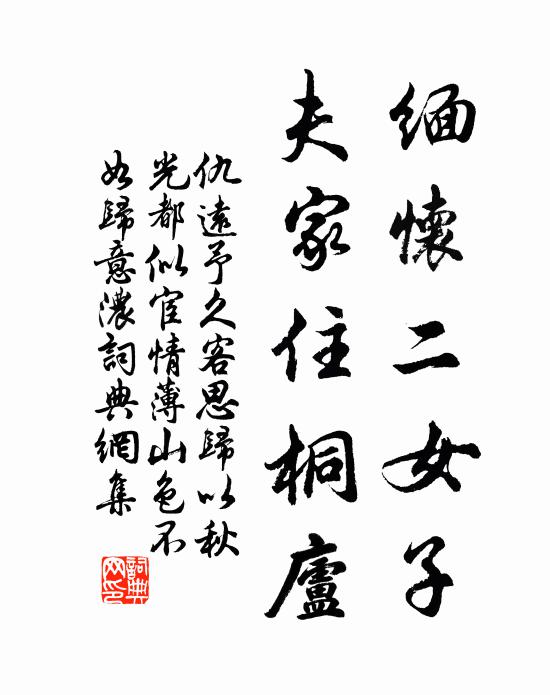 緬懷二女子
夫家住桐廬
仇遠予久客思歸以秋
光都似宦情薄山色不
如歸意濃詞典網集
詞典
网印